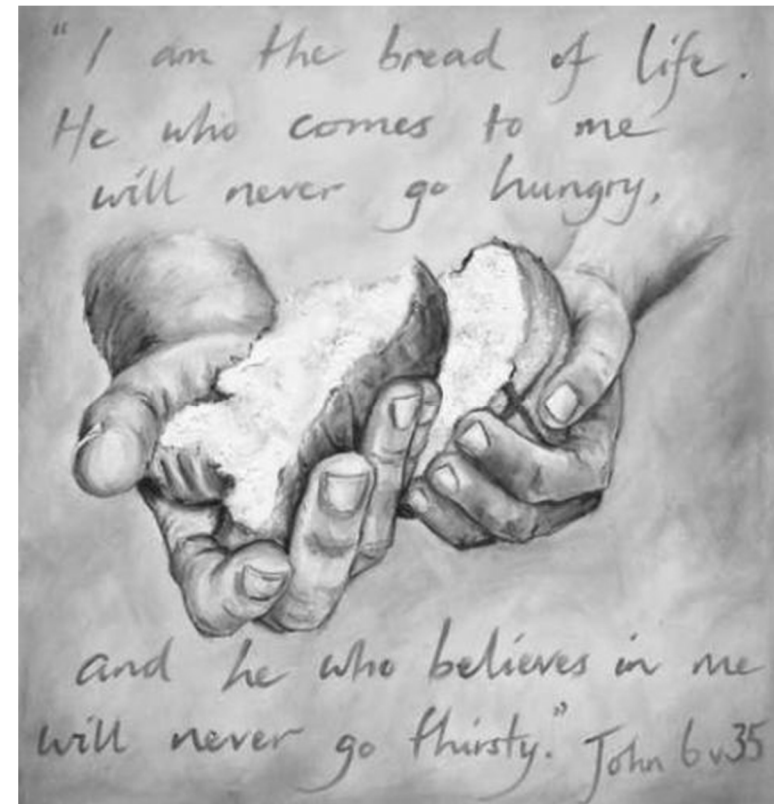 "I am the bread of life.
He who comes to me
will never go hungry,
and he who believes in me
will never go thirsty." John 6 v35